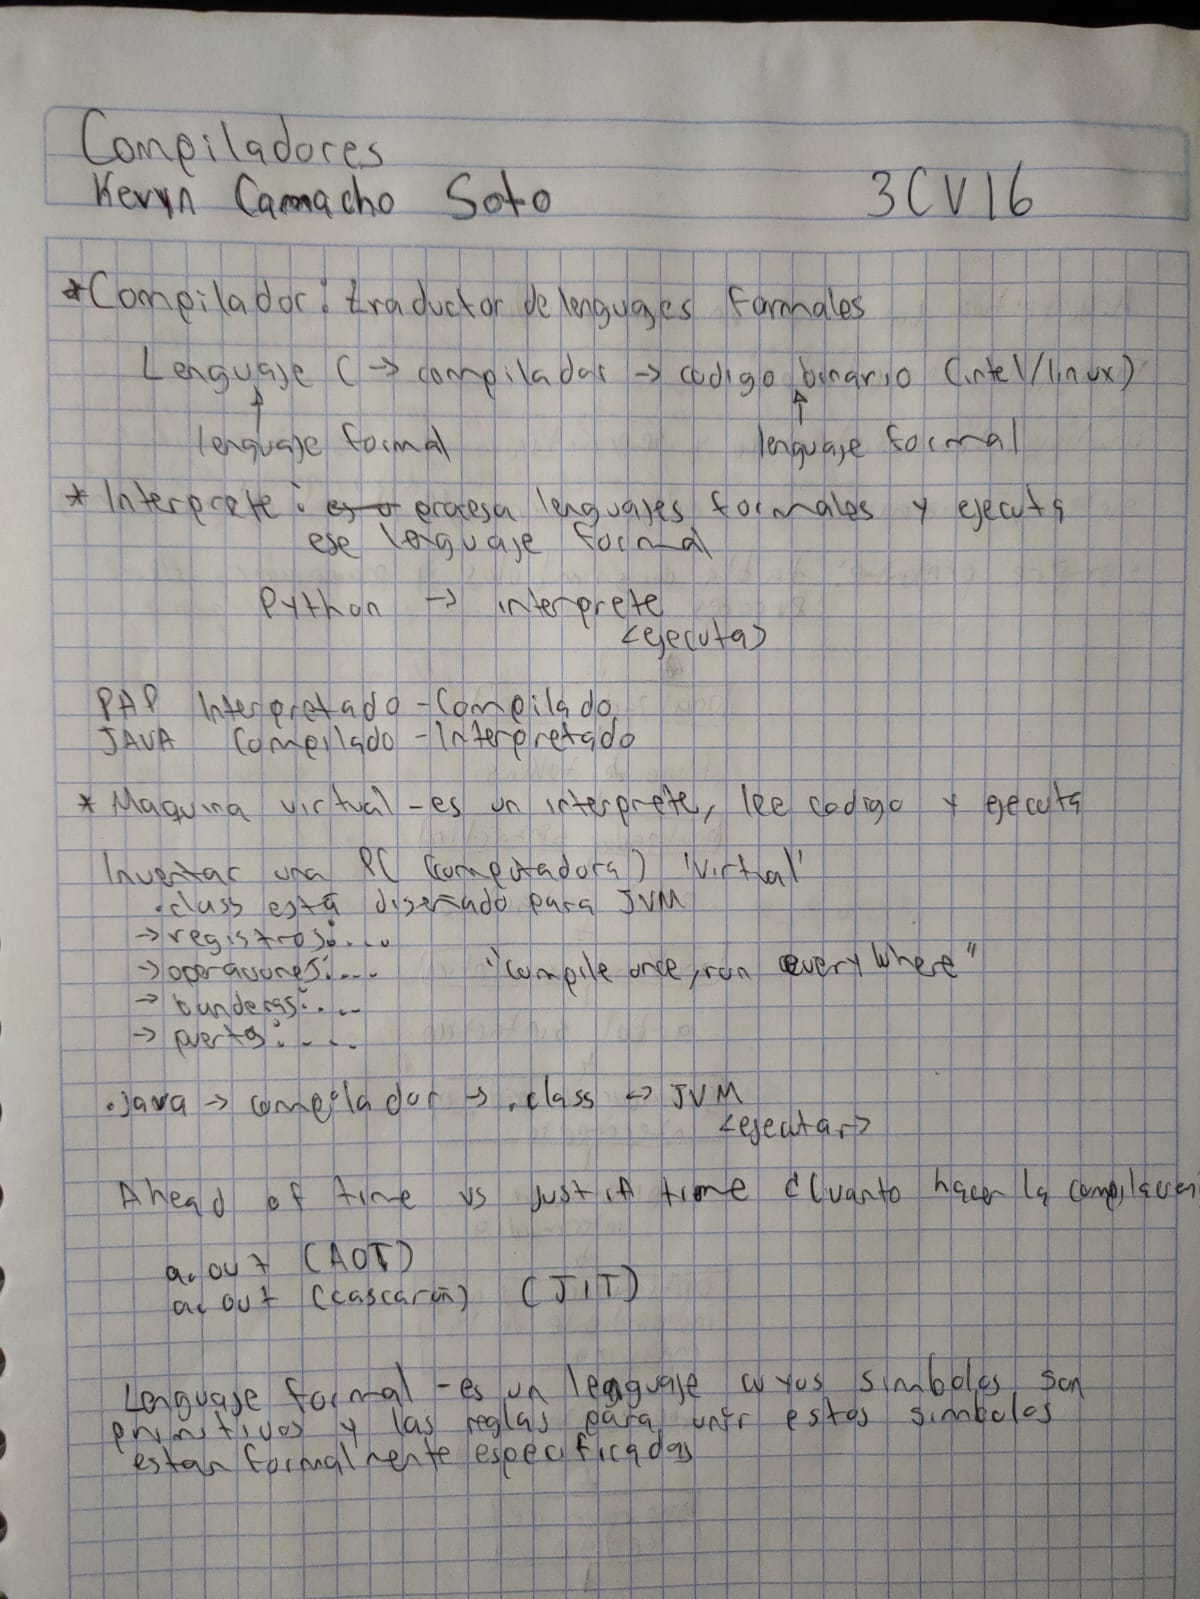 Compiladores
Kevyn Camacho Soto 3CV16
*Compilador: traductor de lenguajes formales
Lenguaje C → compilador → codigo binario (intel/linux)
↑ ↑
lenguaje formal lenguaje formal
* Interprete: procesa lenguajes formales y ejecuta
ese lenguaje formal
Python → interprete
<ejecuta>
PHP Interpretado - Compilado
JAVA Compilado - Interpretado
* Maquina virtual - es un interprete, lee codigo y ejecuta
Inventar una PC (computadora) 'virtual'
.class está diseñado para JVM
→ registros:....
→ operaciones:.... "compile once, run everywhere"
→ banderas:....
→ puertos:....
.java → compilador → .class ↔ JVM
<ejecutar>
Ahead of time vs just in time ¿Cuanto hacer la compilacion
a.out (AOT)
a.out (cascarón) (JIT)
Lenguaje formal - es un lenguaje cuyos simbolos son
primitivos y las reglas para unir estos simbolos
estan formalmente especificadas